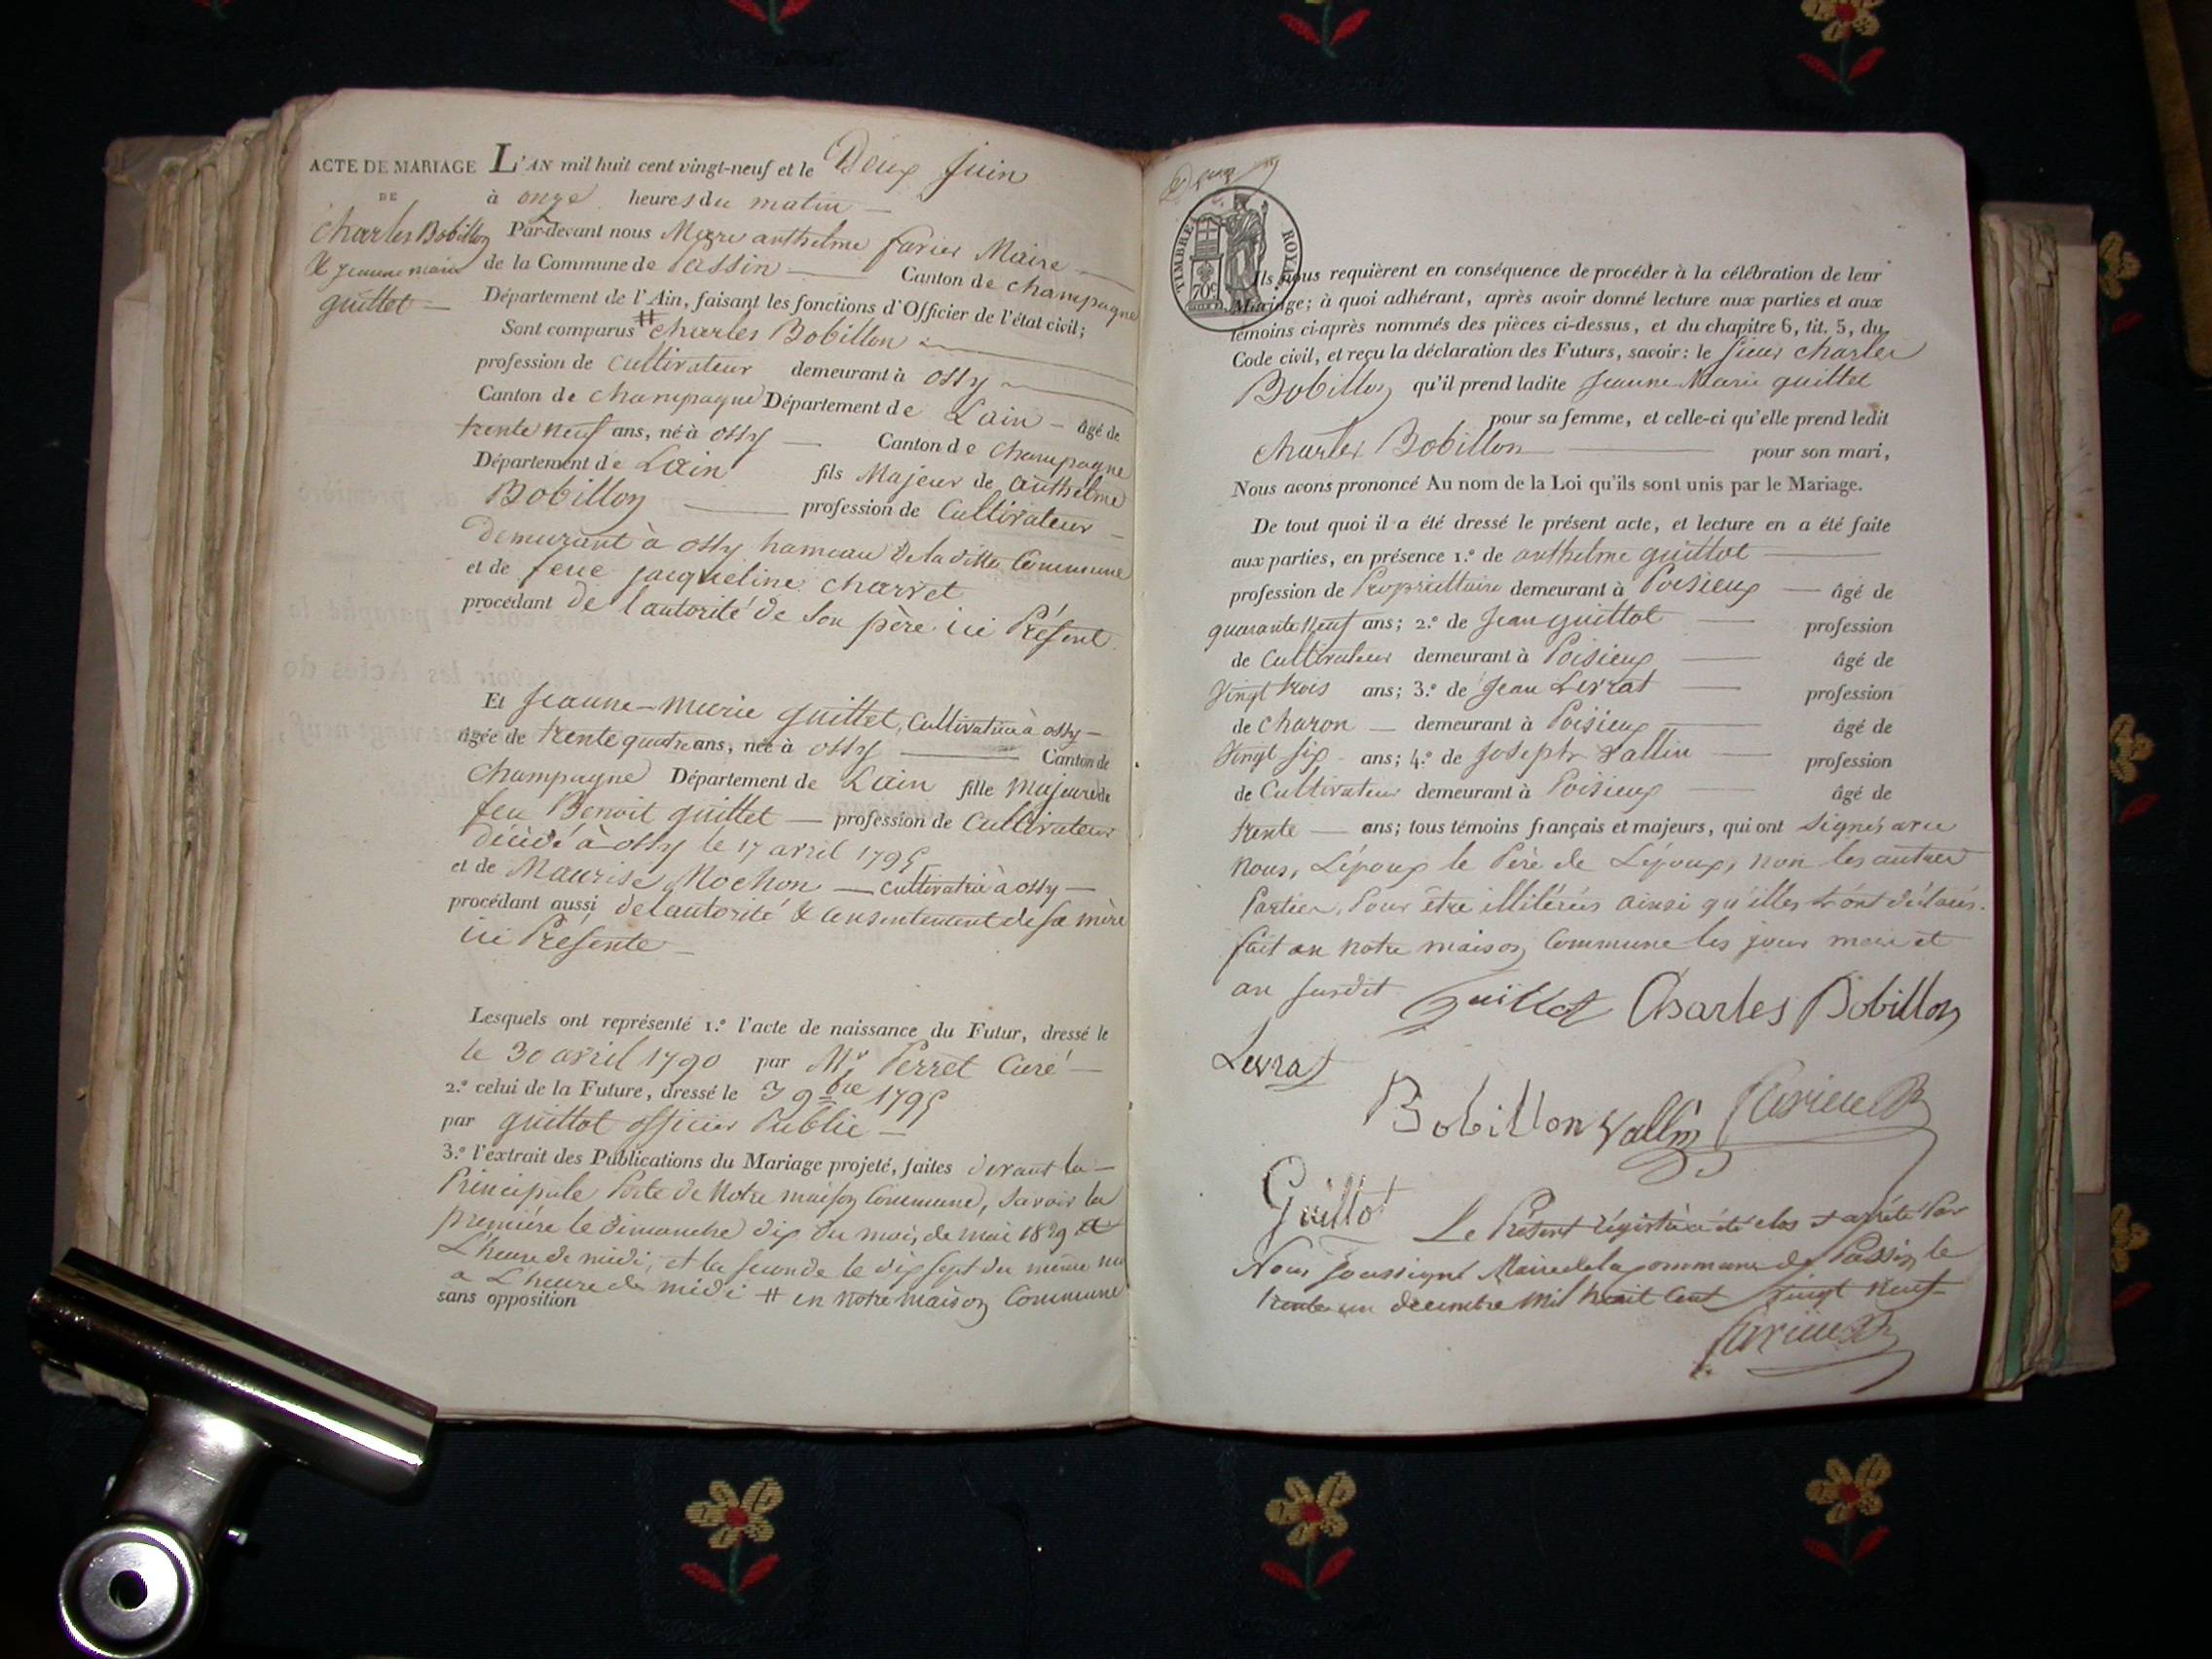 ACTE DE MARIAGE
DE
Charles Bobillon
& Jeanne marie
guittet —
L'AN mil huit cent vingt-neuf et le Deux Juin
à onze heures du matin —
Par-devant nous anthelme Maire —
de la Commune de Passin — Canton de champagne
Département de l'Ain, faisant les fonctions d'Officier de l'état civil;
Sont comparus # charles Bobillon
profession de Cultivateur demeurant à ossy
Canton de champagne Département de Lain — âgé de
trente neuf ans, né à ossy — Canton de Champagne
Département de Lain fils Majeur de anthelme
Bobillon — profession de Cultivateur —
demeurant à ossy hameau de la ditte Commune
et de feue jacqueline charvet
procédant de l'autorité de Son père ici Présent
Et Jeanne-marie guittet, Cultivatrice à ossy —
âgée de trente quatre ans, née à ossy — Canton de
Champagne Département de Lain fille Majeure de
feu Benoit guittet — profession de Cultivateur
décédé à ossy le 17 avril 1795
et de Maurise Mochon — cultivatrice à ossy —
procédant aussi de l'autorité & consentement de sa mère
ici Présente —
Lesquels ont représenté 1.º l'acte de naissance du Futur, dressé le
le 30 avril 1790 par Mr Perret Curé —
2.º celui de la Future, dressé le 3 9bre 1795
par guittot officier Public —
3.º l'extrait des Publications du Mariage projeté, faites devant la —
Principale Porte de Notre maison Commune, Savoir la
première le dimanche dix du mois de mai 1829 a
L'heure de midi, et la seconde le dix sept du même
a L'heure de midi # en notre maison Commune
sans opposition
TIMBRE ROYAL
70c
Ils nous requièrent en conséquence de procéder à la célébration de leur
Mariage; à quoi adhérant, après avoir donné lecture aux parties et aux
témoins ci-après nommés des pièces ci-dessus, et du chapitre 6, tit. 5, du
Code civil, et reçu la déclaration des Futurs, savoir: le sieur charles
Bobillon qu'il prend ladite Jeanne Marie guittet
pour sa femme, et celle-ci qu'elle prend ledit
charles Bobillon — pour son mari,
Nous avons prononcé Au nom de la Loi qu'ils sont unis par le Mariage.
De tout quoi il a été dressé le présent acte, et lecture en a été faite
aux parties, en présence 1.º de anthelme guittot —
profession de Propriettaire demeurant à Poisieux — âgé de
quarante Neuf ans; 2.º de Jean guittot — profession
de Cultivateur demeurant à Poisieux — âgé de
Vingt trois ans; 3.º de Jean Levrat — profession
de charon — demeurant à Poisieux — âgé de
Vingt six ans; 4.º de Joseph Vallin — profession
de Cultivateur demeurant à Poisieux — âgé de
trente — ans; tous témoins français et majeurs, qui ont signés avec
Nous, L'époux le Père de L'époux, non les autres
Parties, Pour être illitérés ainsi qu'illes l'ont déclarés.
fait en notre maison Commune les jour mois et
an susdit
Guittot Charles Bobillon
Levrat
Bobillon Vallin
Guittot
Le Présent régistre a été clos & arrêté Par
Nous Soussigné Maire de la commune de Passin le
trente un décembre mil huit Cent Vingt neuf